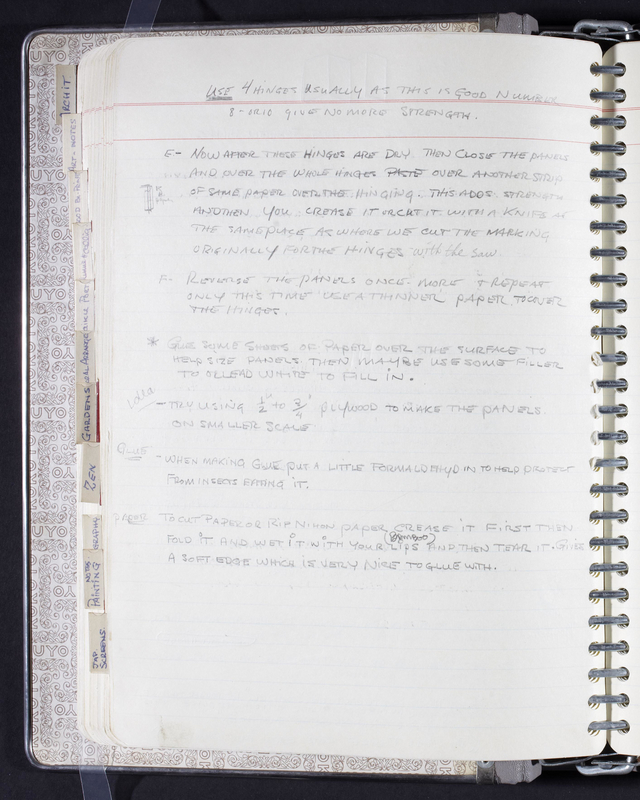 USE 4 HINGES USUALLY AS THIS IS GOOD NUMBER
8 - OR 10 GIVE NO MORE STRENGTH.
E- NOW AFTER THESE HINGES ARE DRY. THEN CLOSE THE PANELS
AND OVER THE WHOLE HINGES PASTE OVER ANOTHER STRIP
OF SAME PAPER OVER THE HINGING. THIS ADDS STRENGTH
AND THEN YOU CREASE IT OR CUT IT WITH A KNIFE AT
THE SAME PLACE AS WHERE WE CUT THE MARKING
ORIGINALLY FOR THE HINGES with the saw.
F- REVERSE THE PANELS ONCE MORE & REPEAT
ONLY THIS TIME USE A THINNER PAPER TO COVER
THE HINGES.
* GLUE SOME SHEETS OF PAPER OVER THE SURFACE TO
HELP SIZE PANELS. THEN MAYBE USE SOME FILLER
TO OR LEAD WHITE TO FILL IN.
Idea
- TRY USING 1/2" TO 3/4" PLYWOOD TO MAKE THE PANELS.
ON SMALLER SCALE
GLUE - WHEN MAKING GLUE PUT A LITTLE FORMALDEHYD IN TO HELP PROTECT
FROM INSECTS EATING IT.
PAPER TO CUT PAPER OR RIP NIHON PAPER CREASE IT FIRST THEN
FOLD IT AND WET IT WITH YOUR LIPS (BAMBOO) AND THEN TEAR IT. GIVES
A SOFT EDGE WHICH IS VERY NICE TO GLUE WITH.
ARCHIT
ART - NOTES
GARDENS
ZEN
NOTES
PAINTING
JAP
SCREENS